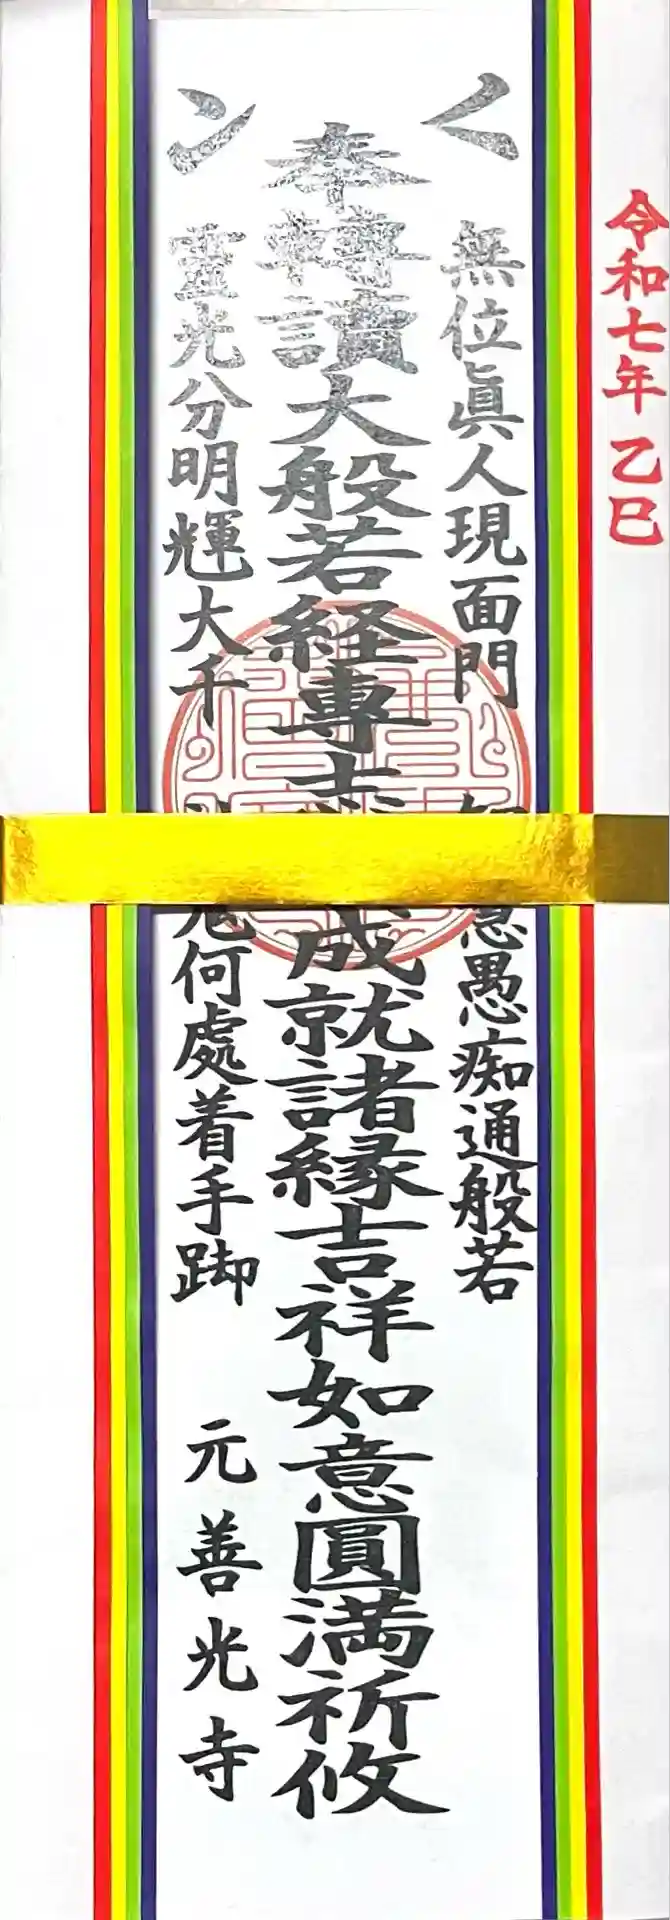 令和七年 乙巳
無位眞人現面門 智慧愚痴通般若
奉轉讀大般若経專 成就諸縁吉祥如意圓満祈攸
靈光分明輝大千 何處着手踋
元善光寺